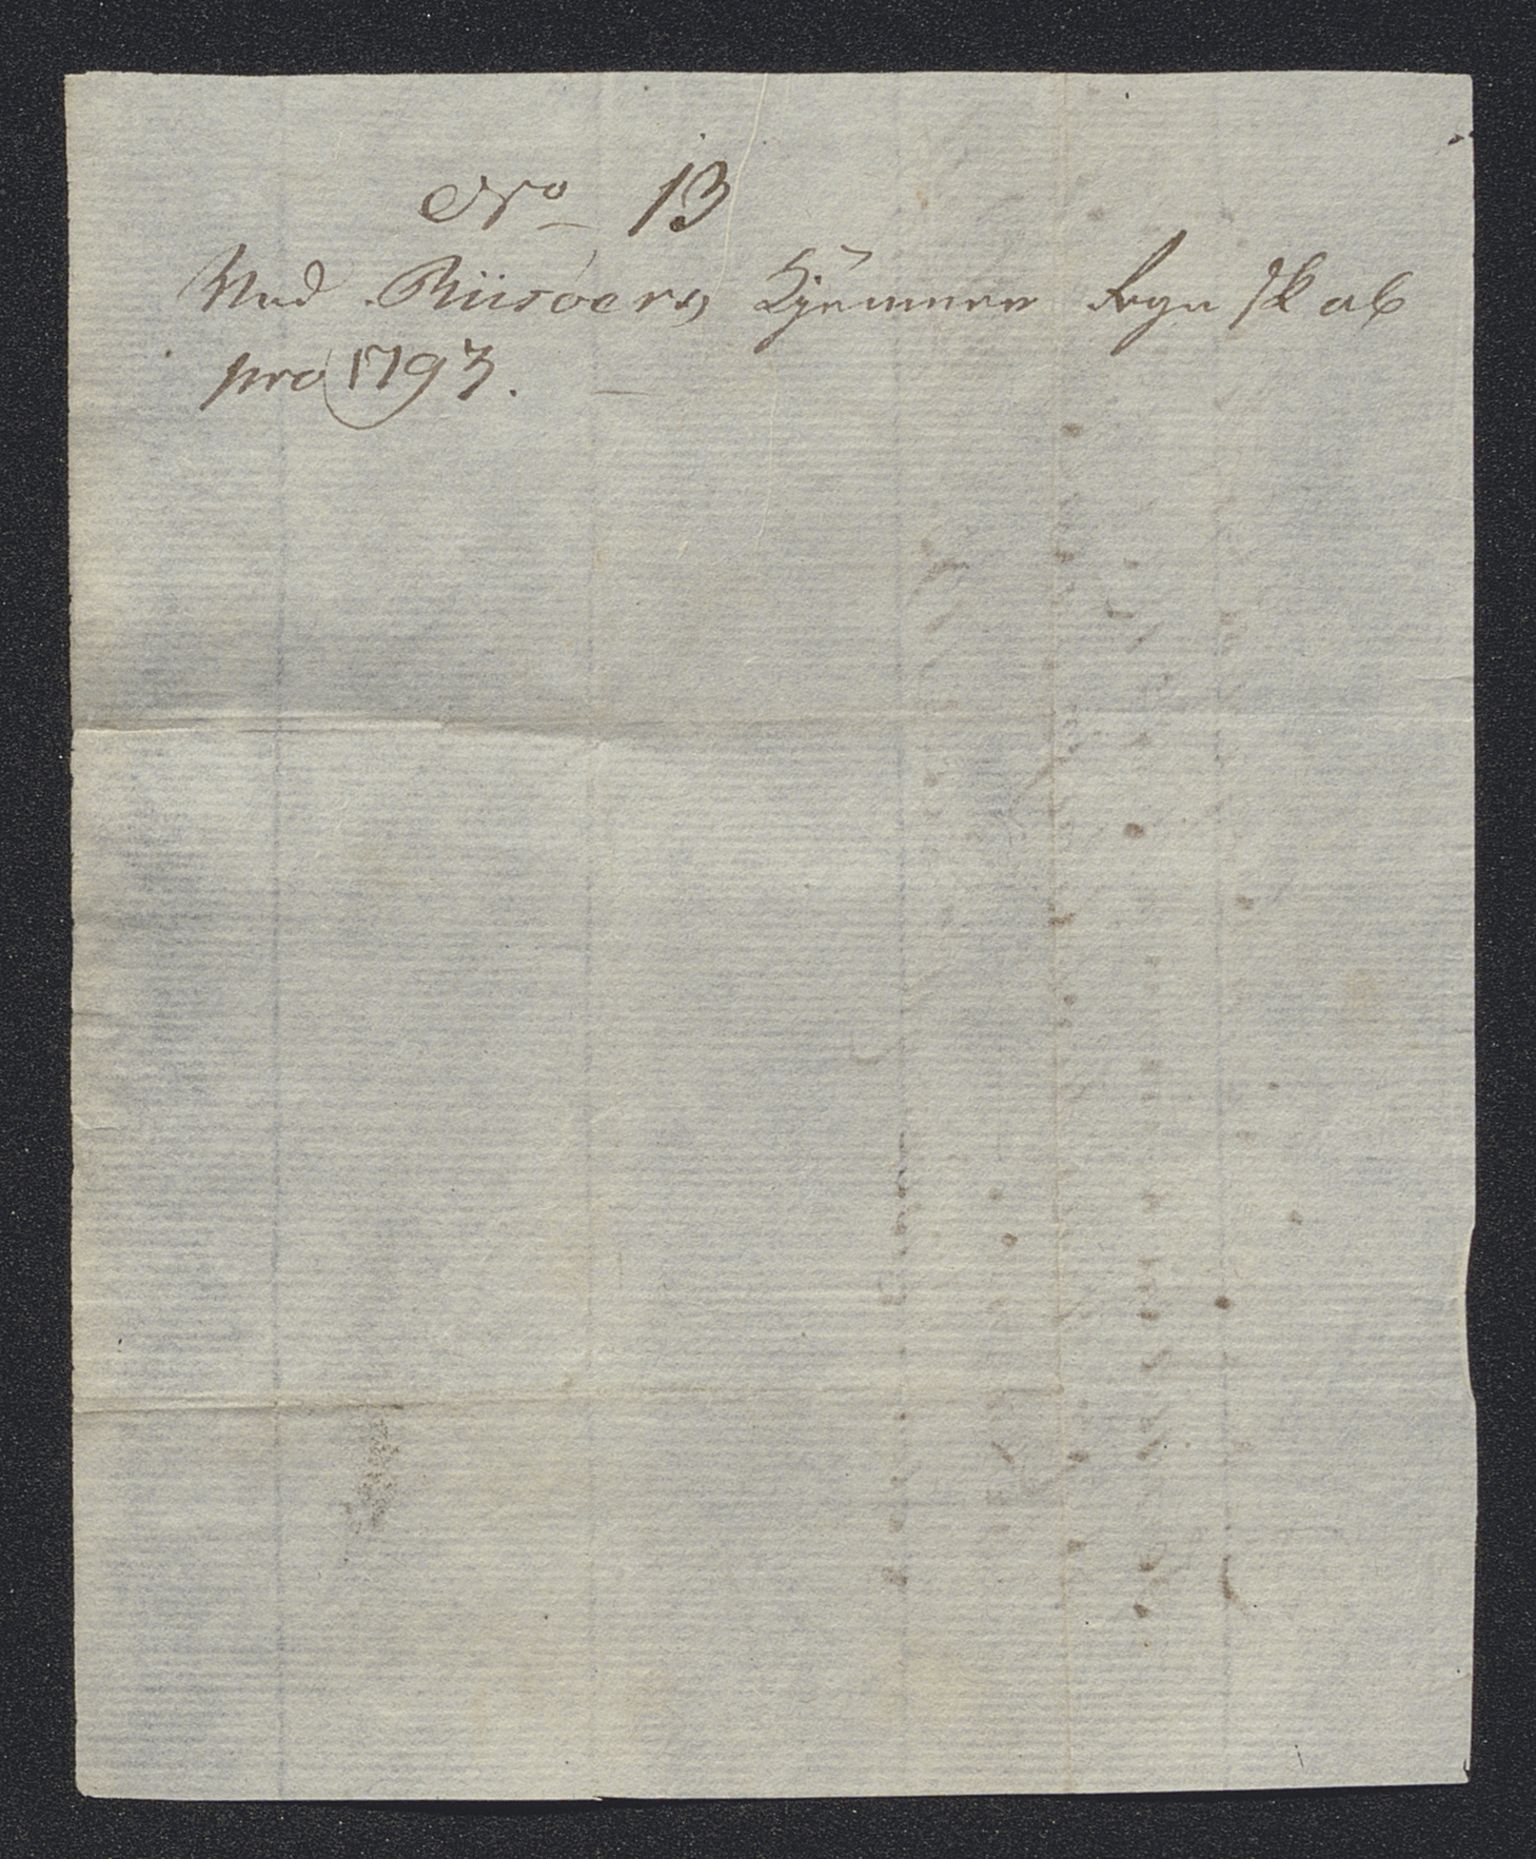 No 13
Med Riisöers Kjemner Regnskab
pro 1793.